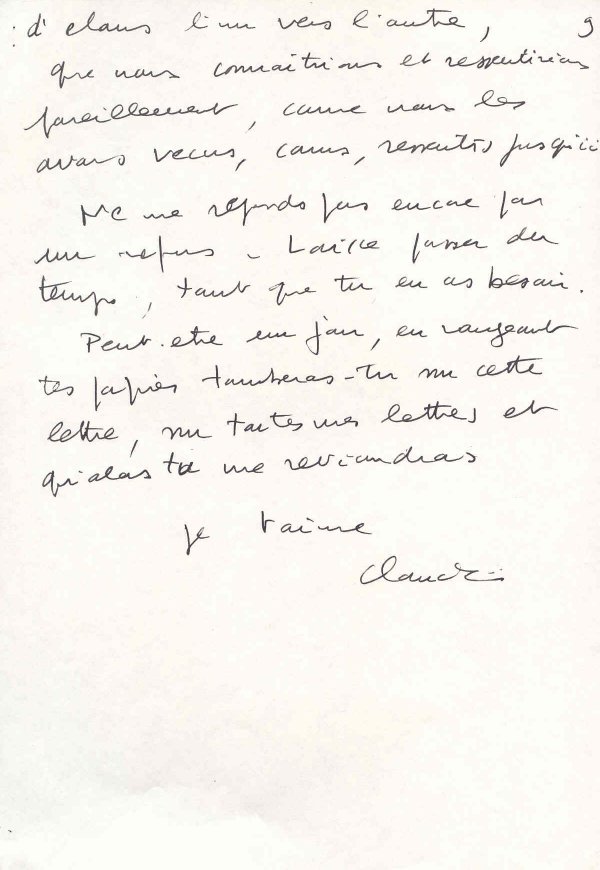 d'elans l'un vers l'autre, 9
que nous connaitrions et ressentirions
pareillement, comme nous les
avons vecus, connus, ressentis jusqu'ici
Ne me reponds pas encore par
un refus - Laisse passer du
temps, tant que tu en as besoin.
Peut-etre un jour, en rangeant
tes papiers tomberas-tu sur cette
lettre, sur toutes mes lettres et
qu'alors tu me reviendras
je t'aime
Claude